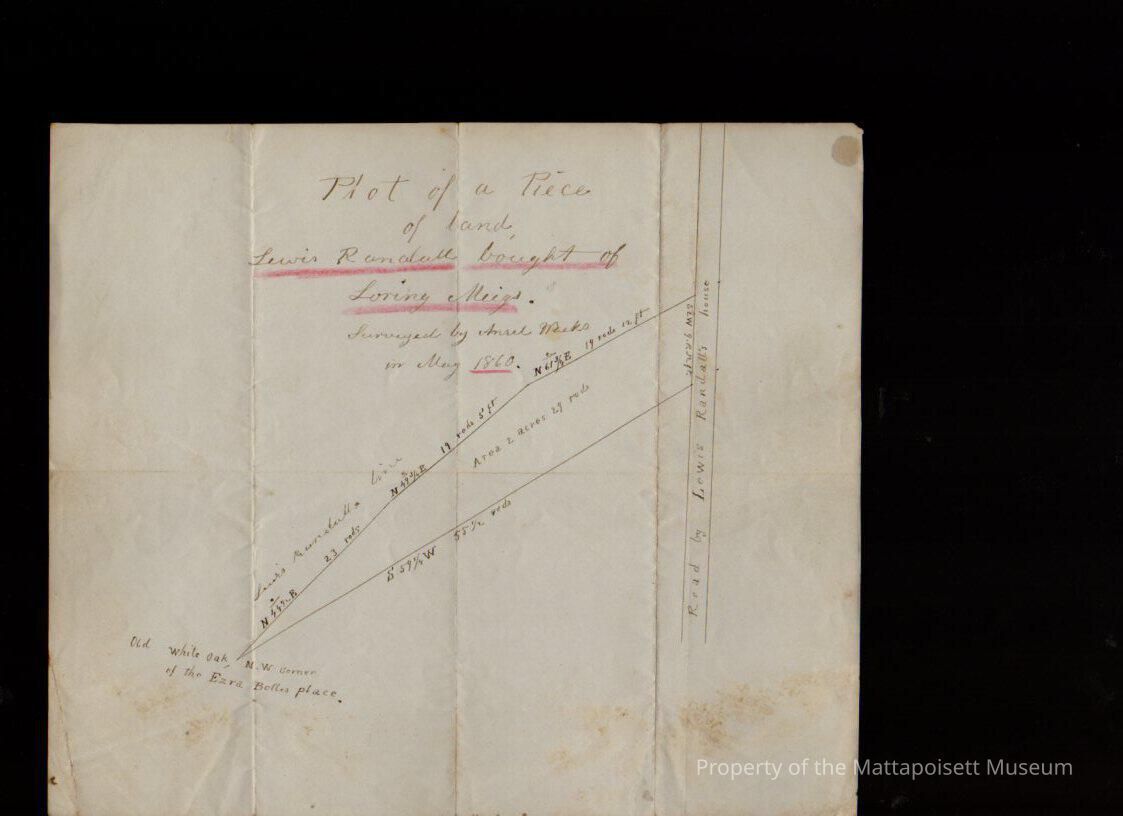 Plot of a Piece
of land
Lewis Randall bought of
Loring Meigs.
Surveyed by Ansel Weeks
in May 1860.
19 rods 12 ft
N 61¾ E
Area 2 acres 29 rods
19 rods 5 ft
Lewis Randalls line
23 rods
55½ rods
Road by Lewis Randall's house
Old White Oak, N.W corner
of the Ezra Bolles place.
Property of the Mattapoisett Museum